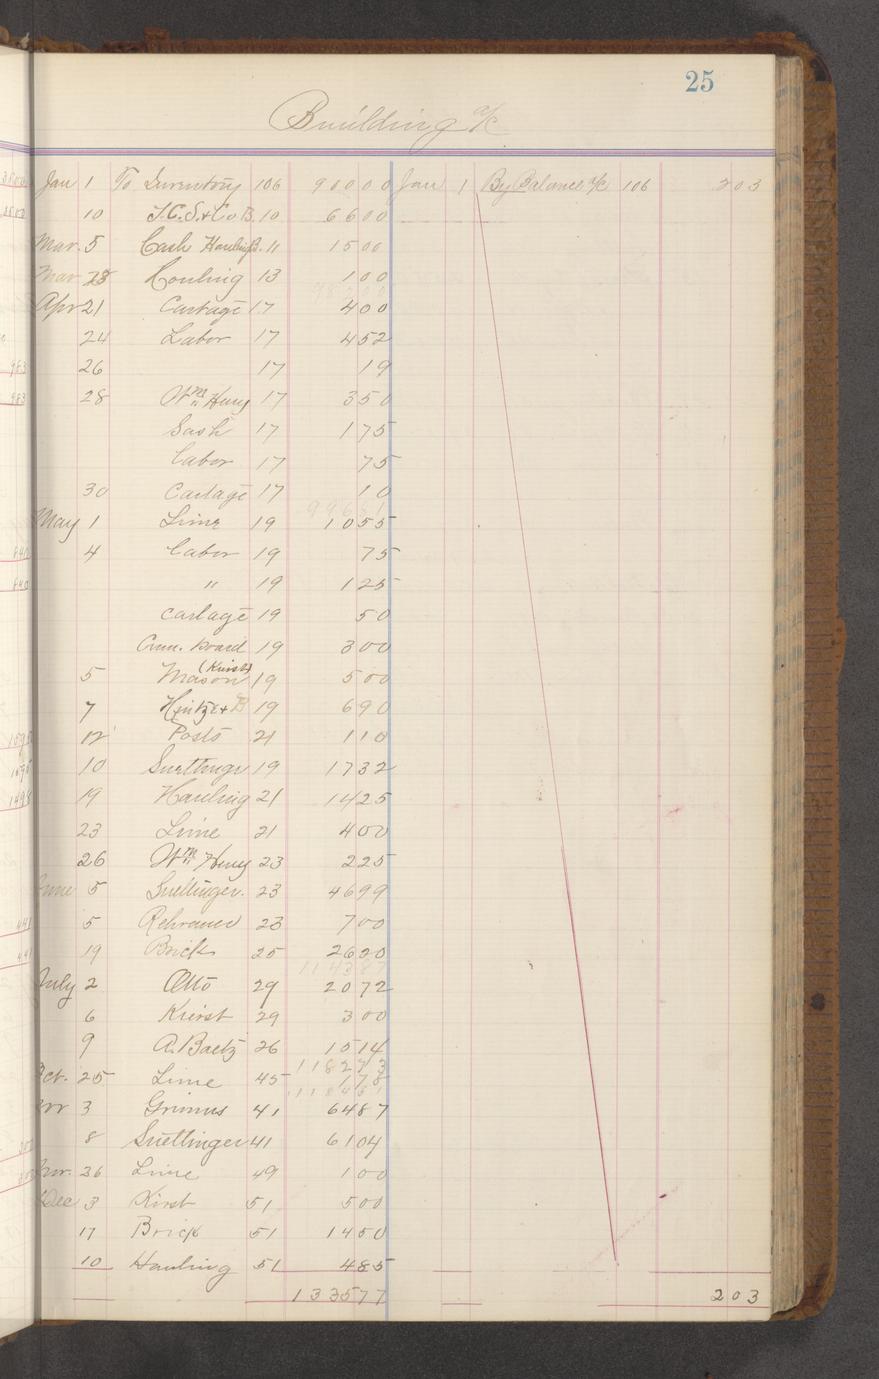 25
Building a/c
Jan 1 To Inventory 106 90000 Jan 1 By Balance a/c 106 203
10 J.C.S. & Co B. 10 6600
Mar. 5 Cash Hauling B. 11 1500
Mar 28 Houling 13 100
Apr 21 Cartage 17 400
24 Labor 17 452
26 17 19
28 Wm Henry 17 350
Sash 17 175
Labor 17 75
30 Cartage 17 10
99681
May 1 Lime 19 1055
4 Labor 19 75
" 19 125
Cartage 19 50
Board 19 300
(Kirst)
5 Mason 19 500
7 Hintze & B 19 690
12 Posts 21 110
10 Suettinger 19 1732
19 Hauling 21 1425
23 Lime 21 400
26 Wm Henry 23 225
June 5 Suettinger. 23 4699
5 Rehrauer 23 700
19 Brick 25 2620
114387
July 2 Otto 29 2072
6 Kirst 29 300
9 A. Baetz 26 1514
118273
Oct. 25 Lime 45 178
118451
3 Grimms 41 6487
8 Suettinger 41 6104
26 Lime 49 100
Dec 3 Kirst 51 500
17 Brick 51 1450
10 Hauling 51 485
133577 203